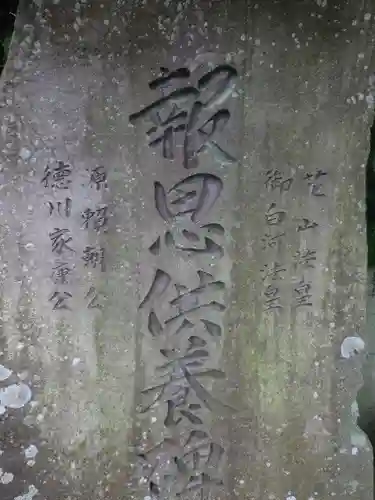 花山法皇
御白河法皇
報恩供養碑
源賴朝公
德川家康公